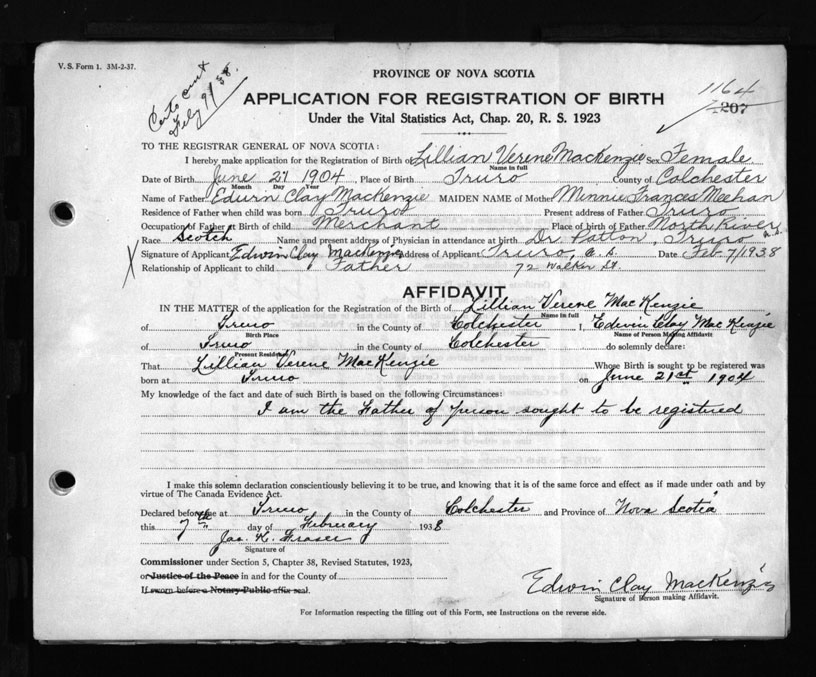 V. S. Form 1. 3M-2-37.
Certs sent
Feby 9/38.
PROVINCE OF NOVA SCOTIA
1164
APPLICATION FOR REGISTRATION OF BIRTH
207
Under the Vital Statistics Act, Chap. 20, R. S. 1923
TO THE REGISTRAR GENERAL OF NOVA SCOTIA:
I hereby make application for the Registration of Birth of Lillian Verene MacKenzie Sex Female
Name in full
Date of Birth June 21 1904, Place of Birth Truro County of Colchester
Month Day Year
Name of Father Edwin Clay MacKenzie MAIDEN NAME of Mother Minnie Frances Meehan
Residence of Father when child was born Truro Present address of Father Truro
Occupation of Father at Birth of child Merchant Place of birth of Father North River N.S.
Race Scotch Name and present address of Physician in attendance at birth Dr. Patton, Truro
X Signature of Applicant Edwin Clay MacKenzie Address of Applicant Truro, N.S. Date Feb 7/1938
Relationship of Applicant to child Father 72 Walker St.
AFFIDAVIT
IN THE MATTER of the application for the Registration of the Birth of Lillian Verene MacKenzie
Name in full
of Truro in the County of Colchester I, Edwin Clay MacKenzie
Birth Place Name of Person Making Affidavit
of Truro in the County of Colchester do solemnly declare:
Present Residence
That Lillian Verene MacKenzie Whose Birth is sought to be registered was
born at Truro on June 21st 1904
My knowledge of the fact and date of such Birth is based on the following Circumstances:
I am the Father of person sought to be registered
I make this solemn declaration conscientiously believing it to be true, and knowing that it is of the same force and effect as if made under oath and by
virtue of The Canada Evidence Act.
Declared before me at Truro in the County of Colchester and Province of Nova Scotia
this 7th day of February 1938
Jas. K. Fraser
Signature of
Commissioner under Section 5, Chapter 38, Revised Statutes, 1923,
or Justice of the Peace in and for the County of
If sworn before a Notary Public affix seal.
Edwin Clay MacKenzie
Signature of Person making Affidavit.
For Information respecting the filling out of this Form, see Instructions on the reverse side.